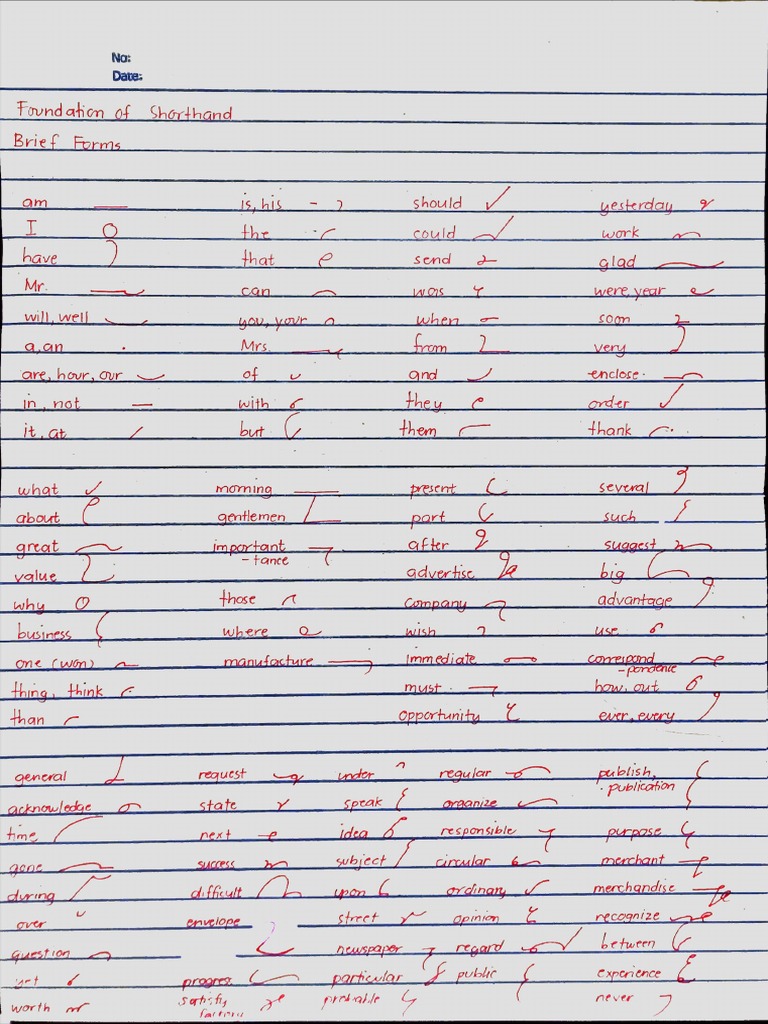 No:
Date:
Foundation of Shorthand
Brief Forms
am is, his should yesterday
I the could work
have that send glad
Mr. can was were, year
will, well you, your when soon
a, an Mrs. from very
are, hour, our of and enclose
in, not with they order
it, at but them thank
what morning present several
about gentlemen part such
great important after suggest
-tance
value advertise big
why those company advantage
business where wish use
one (won) manufacture immediate correspond
-pondence
thing, think must how, out
than opportunity ever, every
general request under regular publish,
publication
acknowledge state speak organize
time next idea responsible purpose
gone success subject circular merchant
during difficult upon ordinary merchandise
over envelope street opinion recognize
question newspaper regard between
yet progress particular public experience
worth satisfy probable never